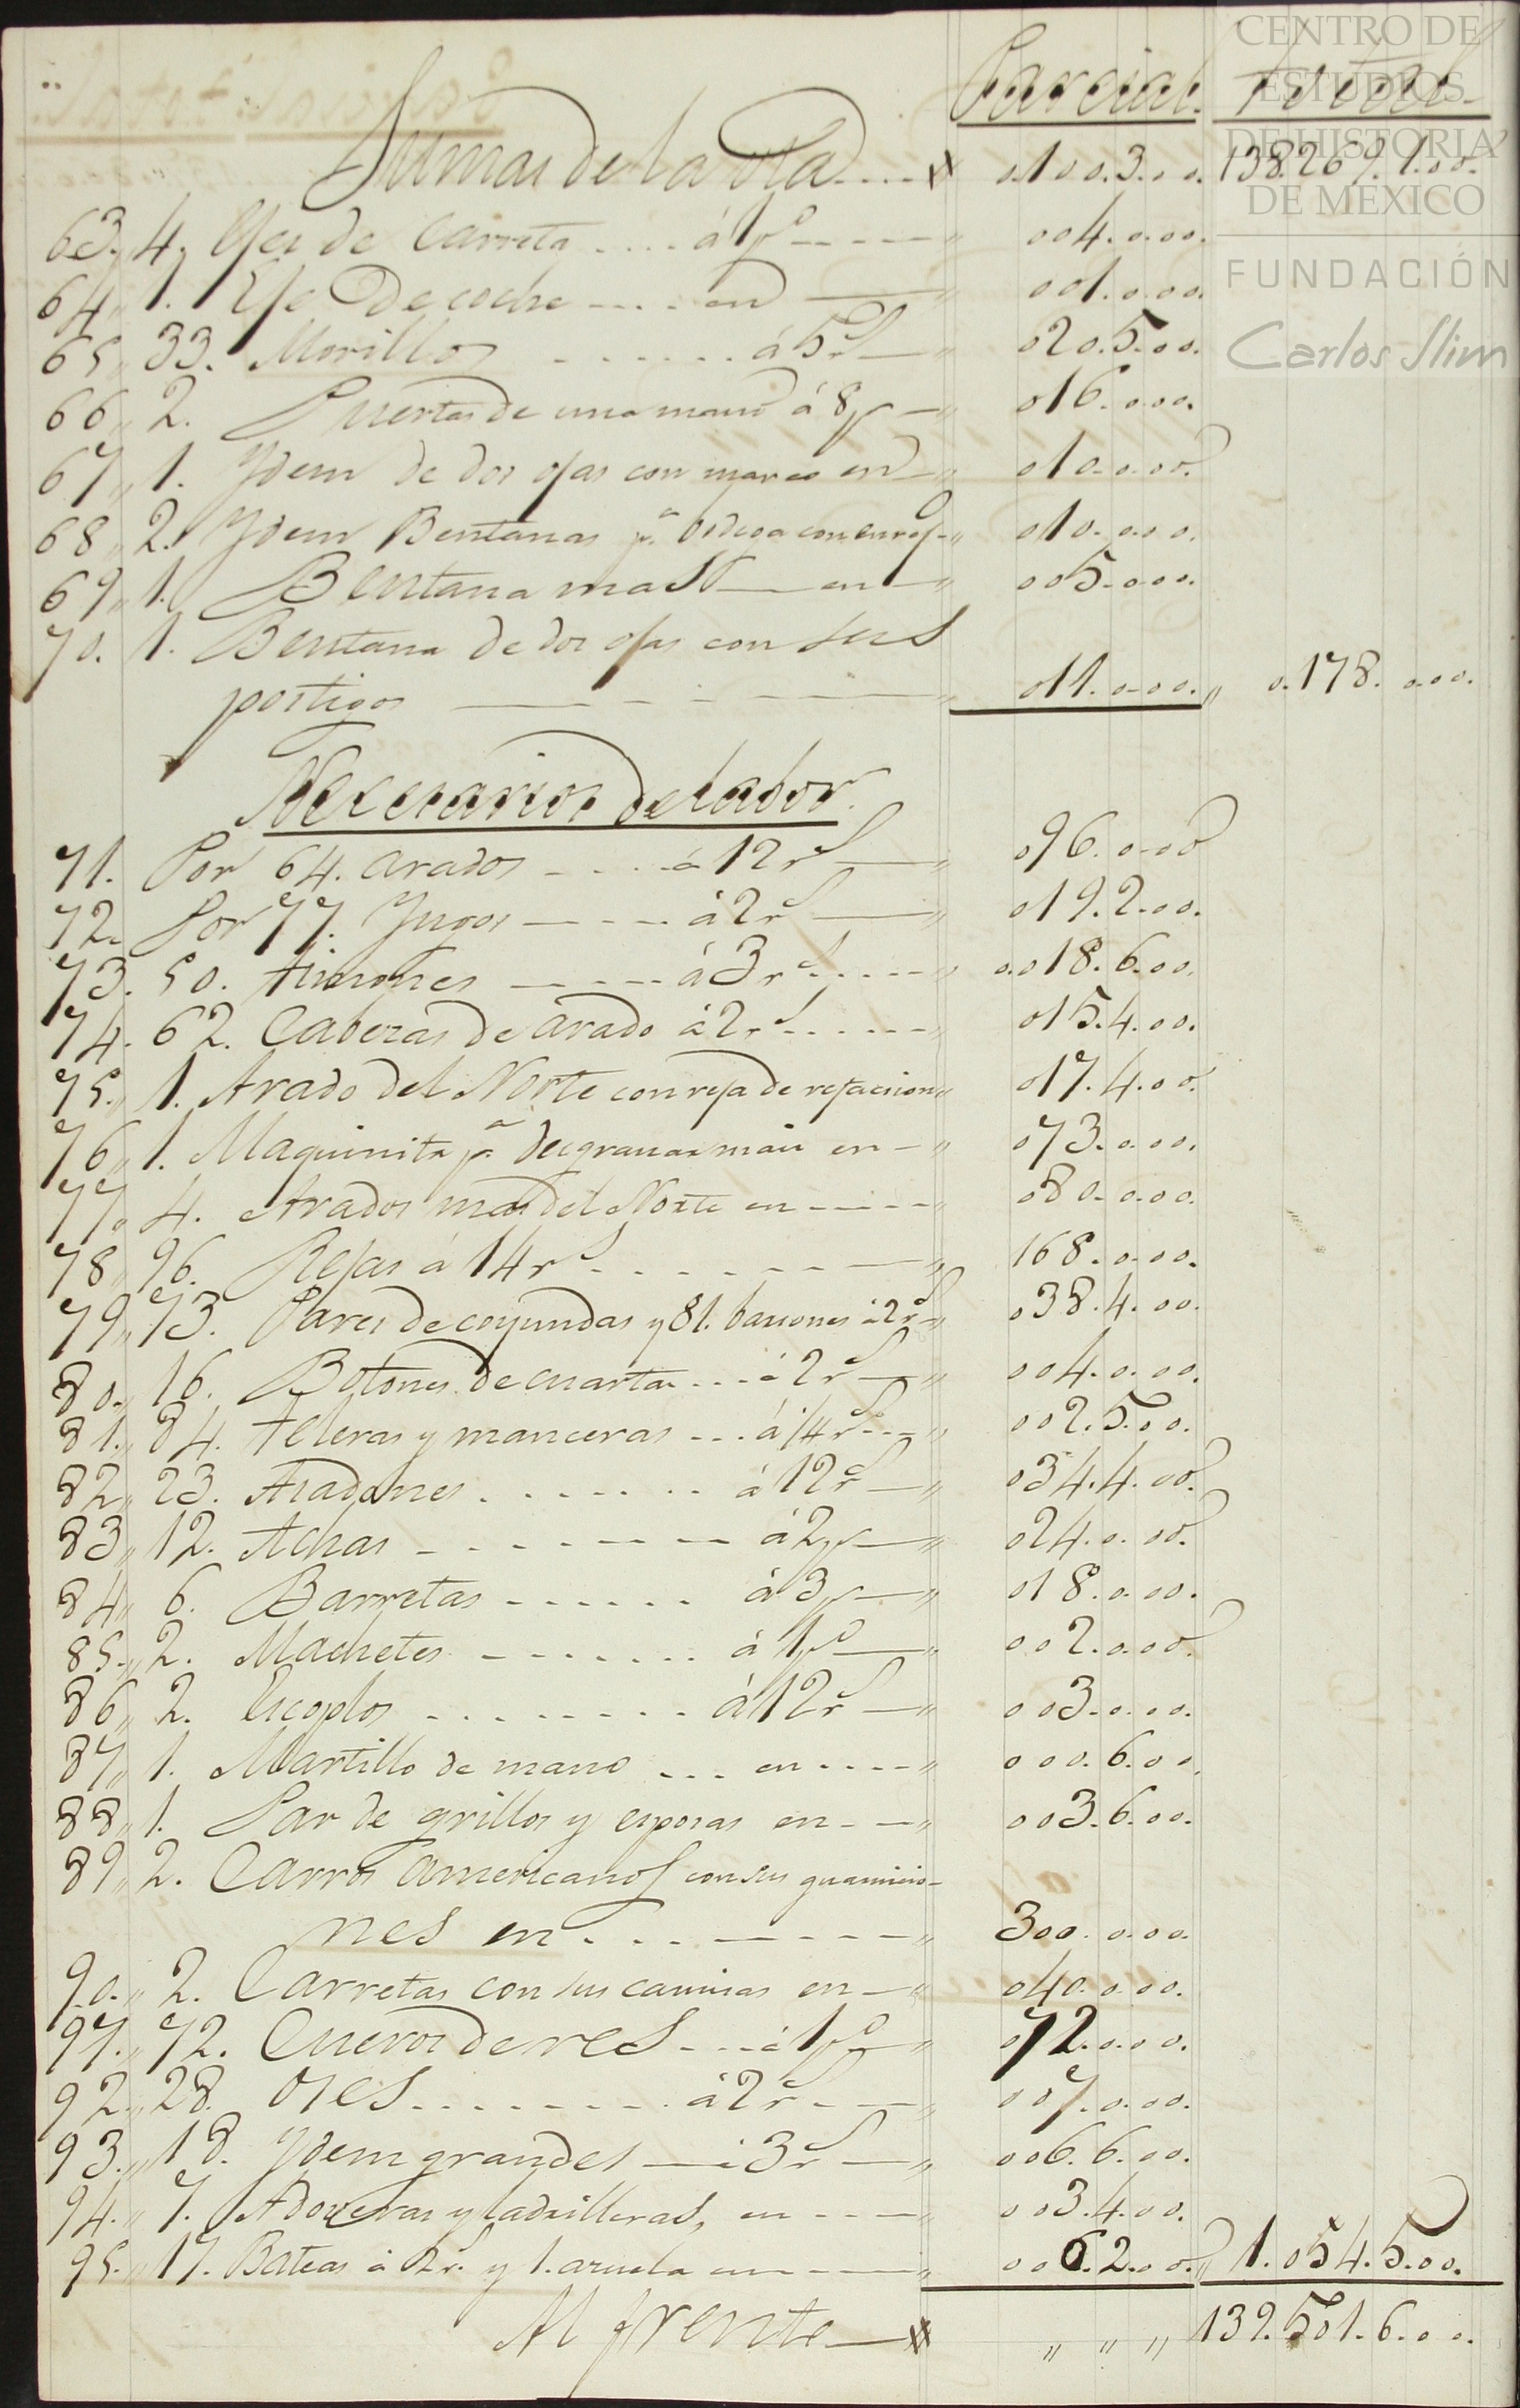 Parcial. Total.
Sumas de la Vta .... # 0.100.3.00. 138.269.1.00.
63. 4. Ejes de Carreta .... á 1 p° ---- " 004.0.00.
64" 1. Eje De coche .... en —— " 001.0.00.
65" 33. Morillos ....... á 5 r^s — " 020.5.00.
66" 2. Puertas de una mano á 8 p — " 016.0.00.
67" 1. Ydem de dos ojas con marco en — " 010.0.00.
68" 2. Ydem Bentanas p^a. bodega con en " 010.0.00.
69" 1. Bentana mas — en — " 005.0.00.
70. 1. Bentana de dos ojas con sus
postigos —— - - —— " 011.0.00. " 0.178.0.00.
Necesarios de labor.
71. Por 64. arados - ... á 12 r^s — " 096.0.00
72. Por 77. Yugos — - - - á 2 r^s — " 019.2.00.
73. 50. timones —— á 3 r^s ..... " 0.018.6.00.
74. 62. Cabezas de arado á 2 r^s ..... " 015.4.00.
75." 1. Arado del Norte con reja de refaccion " 017.4.00.
76" 1. Maquinita p^a desgranar mais en — " 073.0.00.
77" 4. Arados mas del Norte en ----- " 080.0.00.
78" 96. Rejas á 14 r^s ........ " 168.0.00.
79" 73. Pares de coyundas y 81. barsones á 2 r^s " 038.4.00.
80." 16. Botones de cuarta ... á 2 r^s — " 004.0.00.
81." 84. teleras y manceras ... á 1/4 r^s ... " 002.5.00.
82" 23. Asadones ....... á 12 r^s — " 034.4.00.
83" 12. Achas ------- á 2 p — " 024.0.00.
84" 6. Barretas ...... á 3 p — " 018.0.00.
85." 2. Machetes ....... á 1 p° — " 002.0.00.
86" 2. Escoplos ........ á 12 r^s — " 003.0.00.
87" 1. Martillo de mano ... en .... " 000.6.00.
88" 1. Par de grillos y esposas en - — " 003.6.00.
89" 2. Carros americanos con sus guarnicio-
nes en ... ----- " 300.0.00.
90." 2. Carretas con sus camisas en — " 040.0.00.
91." 72. Cueros de res ... á 1 p° " 072.0.00.
92." 28. oses ....... á 2 r^s - — " 007.0.00.
93." 18. Ydem grandes — á 3 r^s — " 006.6.00.
94." 7. Adoveras y ladrilleras, en - - — " 003.4.00.
95." 17. Bateas á 2 r^s. y 1. azuela en ---- " 006.2.00. " 1.054.5.00.
Al frente — # " " " 139.501.6.00.
CENTRO DE
ESTUDIOS
DE HISTORIA
DE MÉXICO
FUNDACIÓN
Carlos Slim